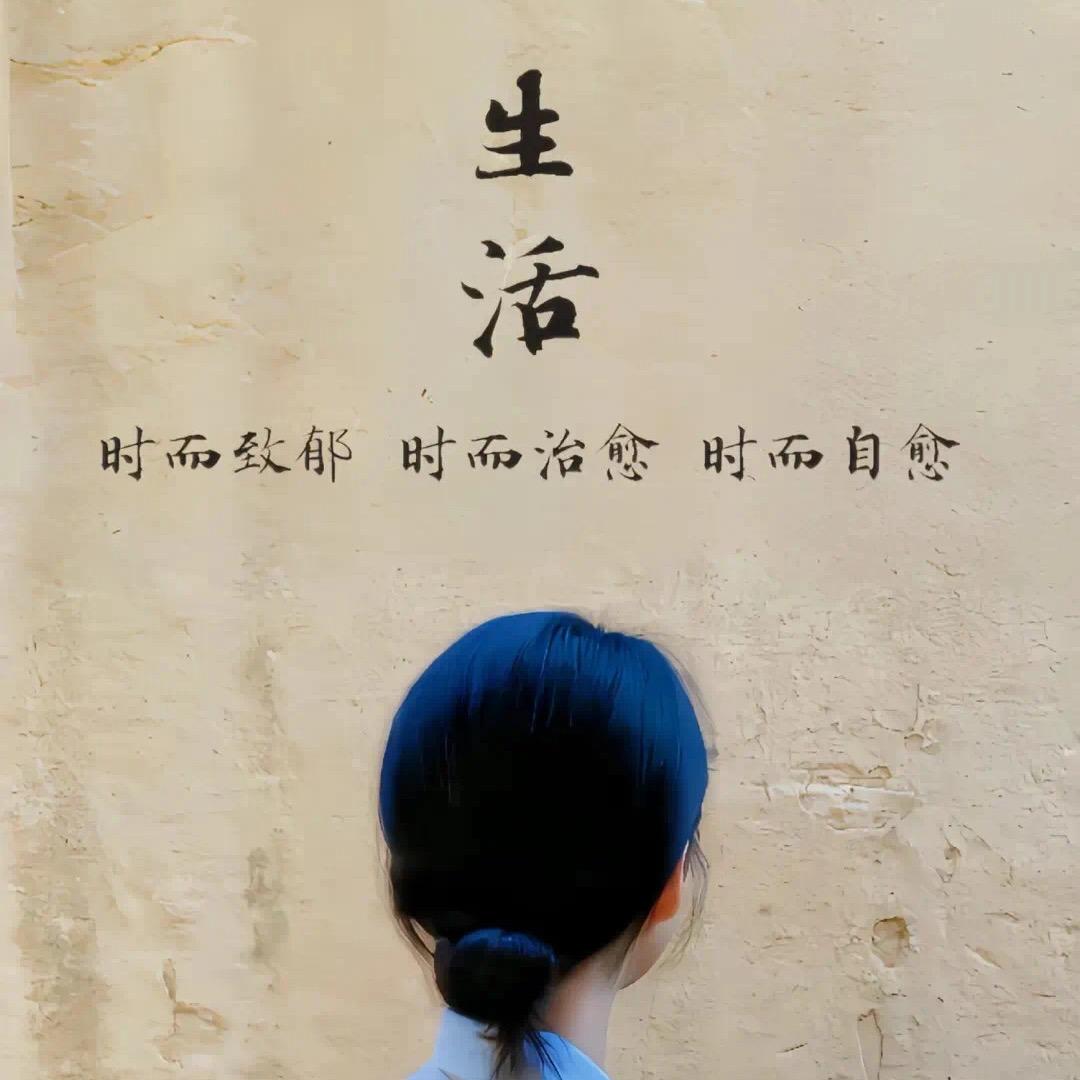 生活
时而致郁 时而治愈 时而自愈